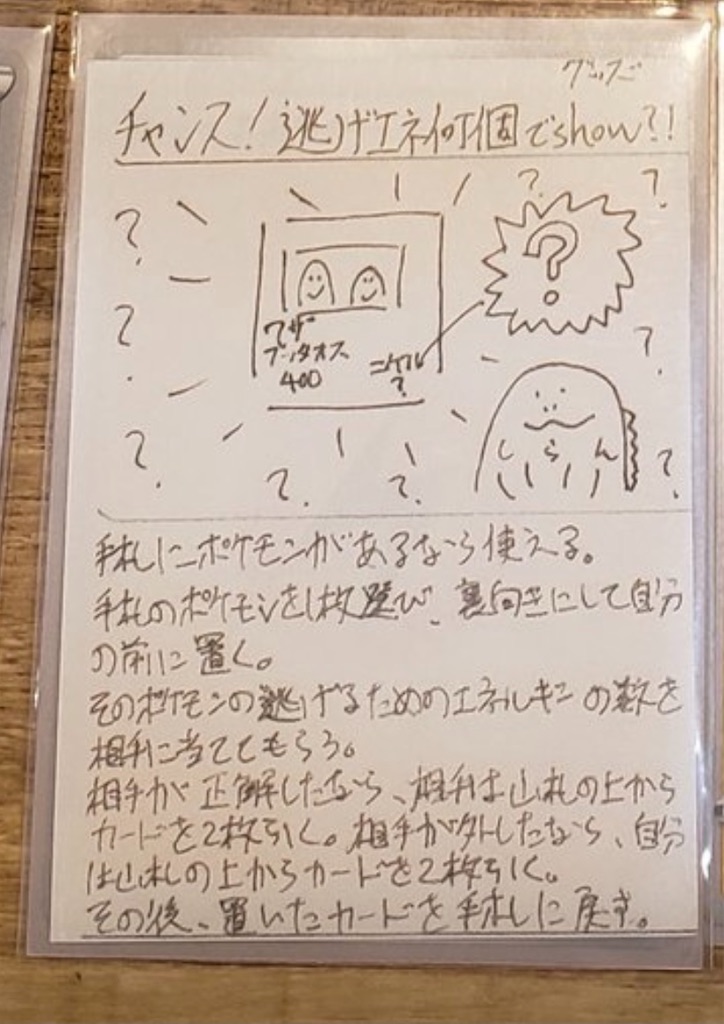 グッズ
チャンス!逃げエネ何個でshow?!
?
?
?
?
?
?
?
?
?
?
?
ワザ
ブッタオス
400
ニゲル
?
しらん
手札にポケモンがあるなら使える。
手札のポケモンを1枚選び、裏向きにして自分
の前に置く。
そのポケモンの逃げるためのエネルギーの数を
相手に当ててもらう。
相手が正解したなら、相手は山札の上から
カードを2枚引く。相手が外したなら、自分
は山札の上からカードを2枚引く。
その後、置いたカードを手札に戻す。